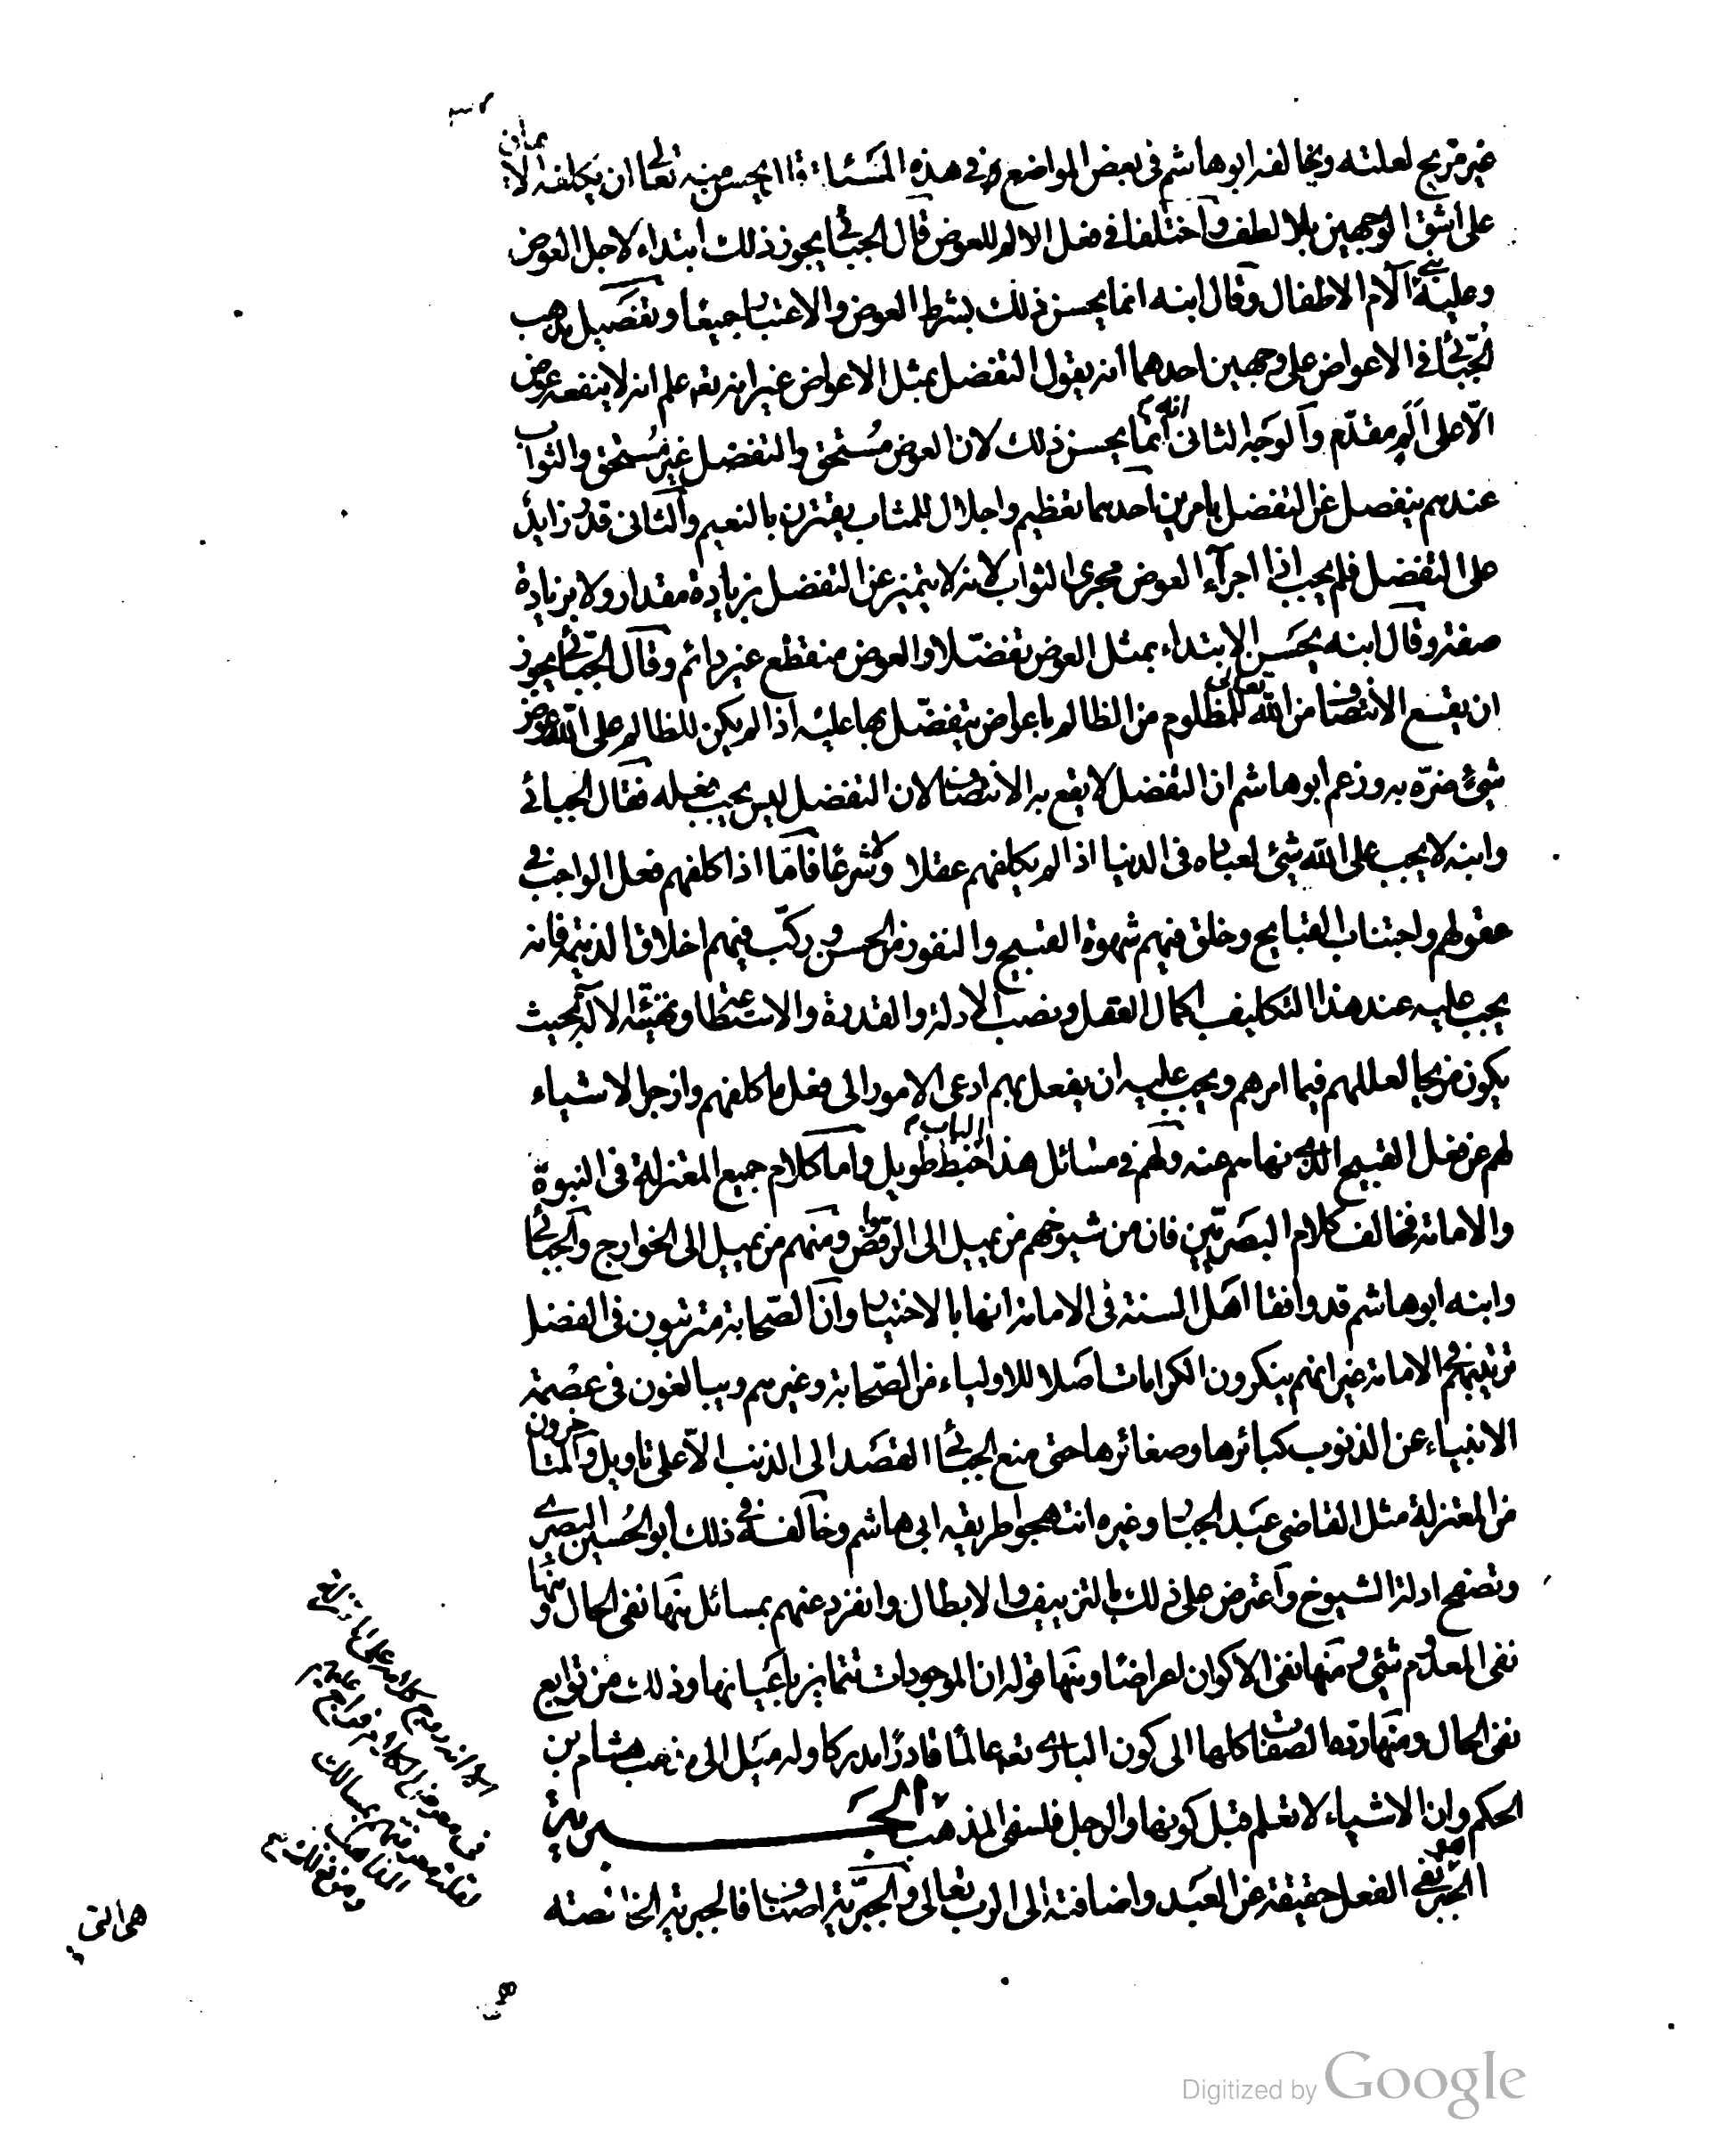 غير مزيح لعلته ويخالفه ابو هاشم فى بعض المواضع فى هذه المسئلة قال يحسن منه تعالى ان يكلفه الايمان
على اشق الوجهين بلا لطف واختلفا فى فعل الالم للعوض قال الجبائى يجوز ذلك ابتداء لاجل العوض
وعليه بنى آلام الاطفال وقال ابنه انما يحسن ذلك بشرط العوض والاعتبار جميعا وتفصيل مذهب
الجبائى فى الاعواض على وجهين احدهما انه يقول التفضل بمثل الاعواض غير انه تع علم انه لا ينفعه عوض
الا على الم مقدم والوجه الثانى انه انما يحسن ذلك لان العوض مستحق والتفضل غير مستحق والثواب
عندهم ينفصل عن التفضل بامرين احدهما تعظيم واجلال للمثاب يقترن بالنعيم والثانى قدر زايد
على التفضل فلم يجب اذا اجراء العوض مجرى الثواب لانه لا يتميز عن التفضل بزيادة مقدار ولا بزيادة
صفة وقال ابنه يحسن الابتداء بمثل العوض تفضلا والعوض منقطع غير دائم وقال الجبائى يجوز
ان يقع الانتصاف من الله تعالى للمظلوم من الظالم باعواض يتفضل بها عليه اذا لم يكن للظالم على الله عوض
شئ ضره به وزعم ابو هاشم ان التفضل لا يقع به الانتصاف لان التفضل ليس يجب فعله فقال الجبائى
وابنه لا يجب على الله شئ لعباده فى الدنيا اذا لم يكلفهم عقلا ولا شرعا فاما اذا كلفهم فعل الواجب فى
عقولهم واجتناب القبايح وخلق فيهم شهوة القبيح والنفور من الحسن وركب فيهم اخلاق الذميمة فانه
يجب عليه عند هذا التكليف اكمال العقل ونصب الادلة والقدرة والاستطاعة وتهيئة الالة بحيث
يكون مزيحا لعللهم فيما امرهم ويجب عليه ان يفعل بهم ادعى الامور الى فعل ما كلفهم وازجر الاشياء
لهم عن فعل القبيح الذى نهاهم عنه ولهم فى مسائل هذا الباب خبط طويل واما كلام جميع المعتزلة فى النبوة
والامامة فخالف كلام البصريين فان من شيوخهم من يميل الى الروافض ومنهم من يميل الى الخوارج والجبائى
وابنه ابو هاشم قد وافقا اهل السنة فى الامامة انها بالاختيار وان الصحابة مترتبون فى الفضل
ترتيبهم فى الامامة غير انهم ينكرون الكرامات اصلا للاولياء من الصحابة وغيرهم ويبالغون فى عصمة
الانبياء عن الذنوب كبائرها وصغائرها حتى منع الجبائى القصد الى الذنب الا على تاويل والمتاخرون
من المعتزلة مثل القاضى عبد الجبار وغيره انتهجوا طريقه ابى هاشم وخالفه فى ذلك ابو الحسين البصرى
وتصفح ادلة الشيوخ واعترض على ذلك بالتزييف والابطال وانفرد عنهم بمسائل منها نفى الحال ومنها
نفى المعدوم شئ ومنها نفى الاكوان اعراضا ومنها قوله ان الموجودات تتمايز باعيانها وذلك من توابع
نفى الحال ومنها رده الصفات كلها الى كون البارى تع عالما قادرا مدركا وله ميل الى مذهب هشام بن
الحكم وان الاشياء لا تعلم قبل كونها والرجل فلسفى المذهب الجبرية
الجبر هو نفى الفعل حقيقة عن العبد واضافته الى الرب تعالى والجبرية اصناف فالجبرية الخالصة
هى التى
Digitized by Google